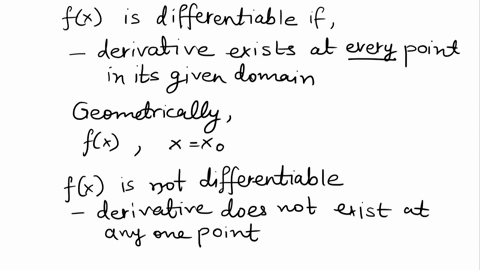 f(x) is differentiable if,
- derivative exists at every point
in its given domain
Geometrically,
f(x) , x = x₀
f(x) is not differentiable
- derivative does not exist at
any one point